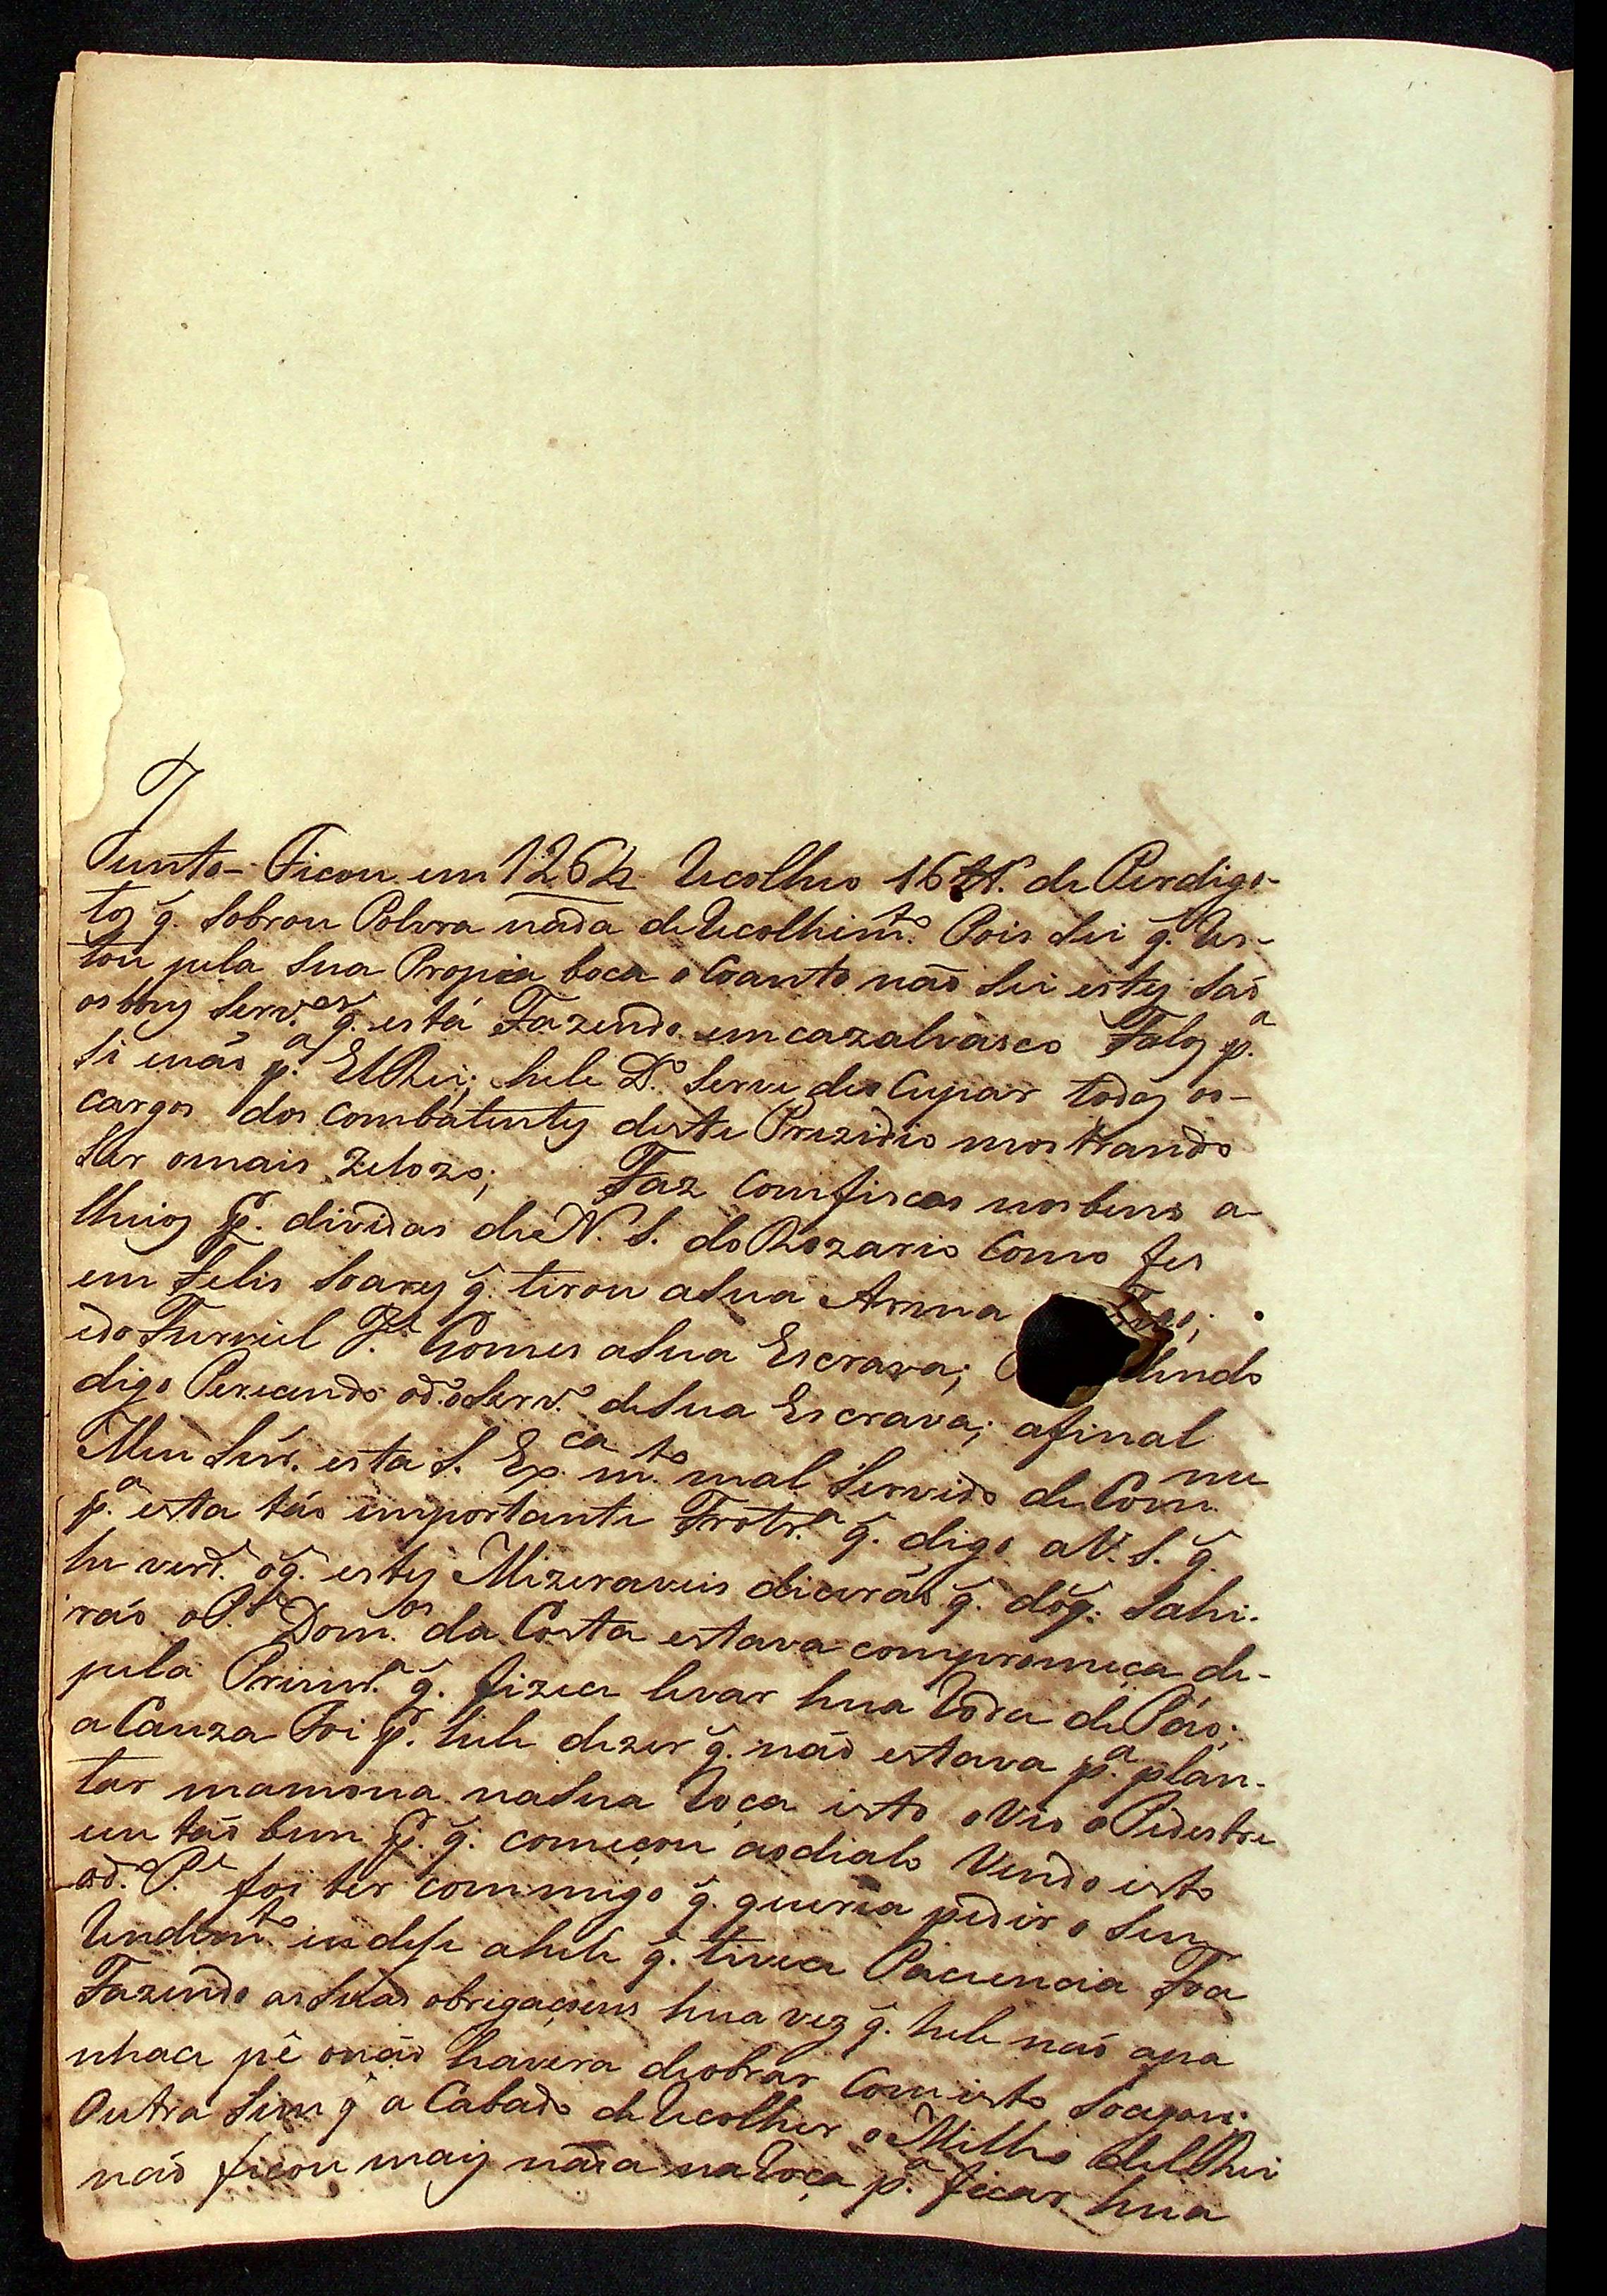 Junto - Ficou em 1264 Recolheo 16 de Perdigo-
tos q̃. Sobrou Polvra nada deRecolhim.to Pois Sei q̃. Res-
tou pela Sua Propia boca o Coanto naõ Sei estes Saõ
os bons Serv.os q̃. está Fazendo emcazalvasco Falos p.a
Si enaõ p.a ElRei; hele D.o Serve deoCupar todos os-
cargos dos Combatentes deste Prezidio mostrando
Ser omais Zelozo; Faz Comfiscos nosbens a-
lheios P.r dividas deN. S. do Rozario Como fes
em Felis Soares q̃. tirou aSua Arma
edo Furriel J.e Gomes aSua Escrava; endo
digo Perecendo od.o oServ.o deSua Escrava; afinal
Meu Snr. esta S. Ex.ca m.to mal Servido deCom.me
p.a esta taõ importante Frotr.a q̃. digo aV. S. q̃.
he verd.e oq̃. estes Mizeraveis diceraõ q̃. doq̃. Sahi-
raõ oP.e Dom.os da Costa estava comprомeça de-
pela Primr.a q̃. fizece levar hua Roda dePáo;
aCauza Foi P.r hele dezer q̃. naõ estava p.a plan-
tar mamona naSua Roça isto oVio oPedestre
eu taõ bem P.r q̃. começou aodialo Vendo isto
od.o P.e foi ter commigo q̃. queria pedir o Seu
Rendim.to eudise ahele q̃. tivece Paciencia Foce
Fazendo asSuas obrigaçoens hua vez q̃. hele naõ apa
nhace pê onaõ havera deobrar Com isto Socegou;
Outra Sim q̃ aCabado deRecolher oMilho delRei
naõ ficou mais nada naRoça p.a ficar hua